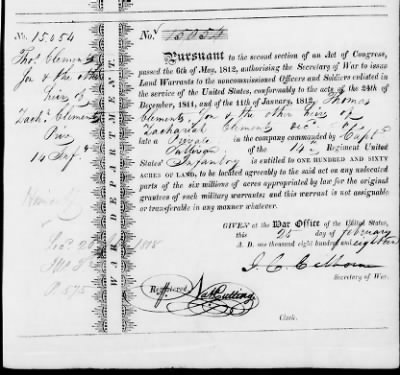 No. 15054
Thos. Clements
Son & the other
heirs of
Zachh. Clements
Priv
14 Inf.
1818
P. 575
WAR DEPARTMENT.
No. 15054
Pursuant to the second section of an Act of Congress,
passed the 6th of May, 1812, authorising the Secretary of War to issue
Land Warrants to the noncommissioned Officers and Soldiers enlisted in
the service of the United States, conformably to the acts of the 24th
December, 1811, and the 11th of January, 1812, Thomas
Clements, Son & the other heirs of
Zachariah Clements decd.
late a Private in the company commanded by Captn.
of the 14th Regiment United
States' Infantry is entitled to ONE HUNDRED AND SIXTY
ACRES OF LAND, to be located agreeably to the said act on any unlocated
parts of the six millions of acres appropriated by law for the original
grantees of such military warrants; and this warrant is not assignable
or transferable in any manner whatever.
GIVEN at the War Office of the United States,
this 25 day of february
A. D. one thousand eight hundred and eighteen
J. C. Calhoun
Secretary of War.
Registered Nat Cutting
Clerk.